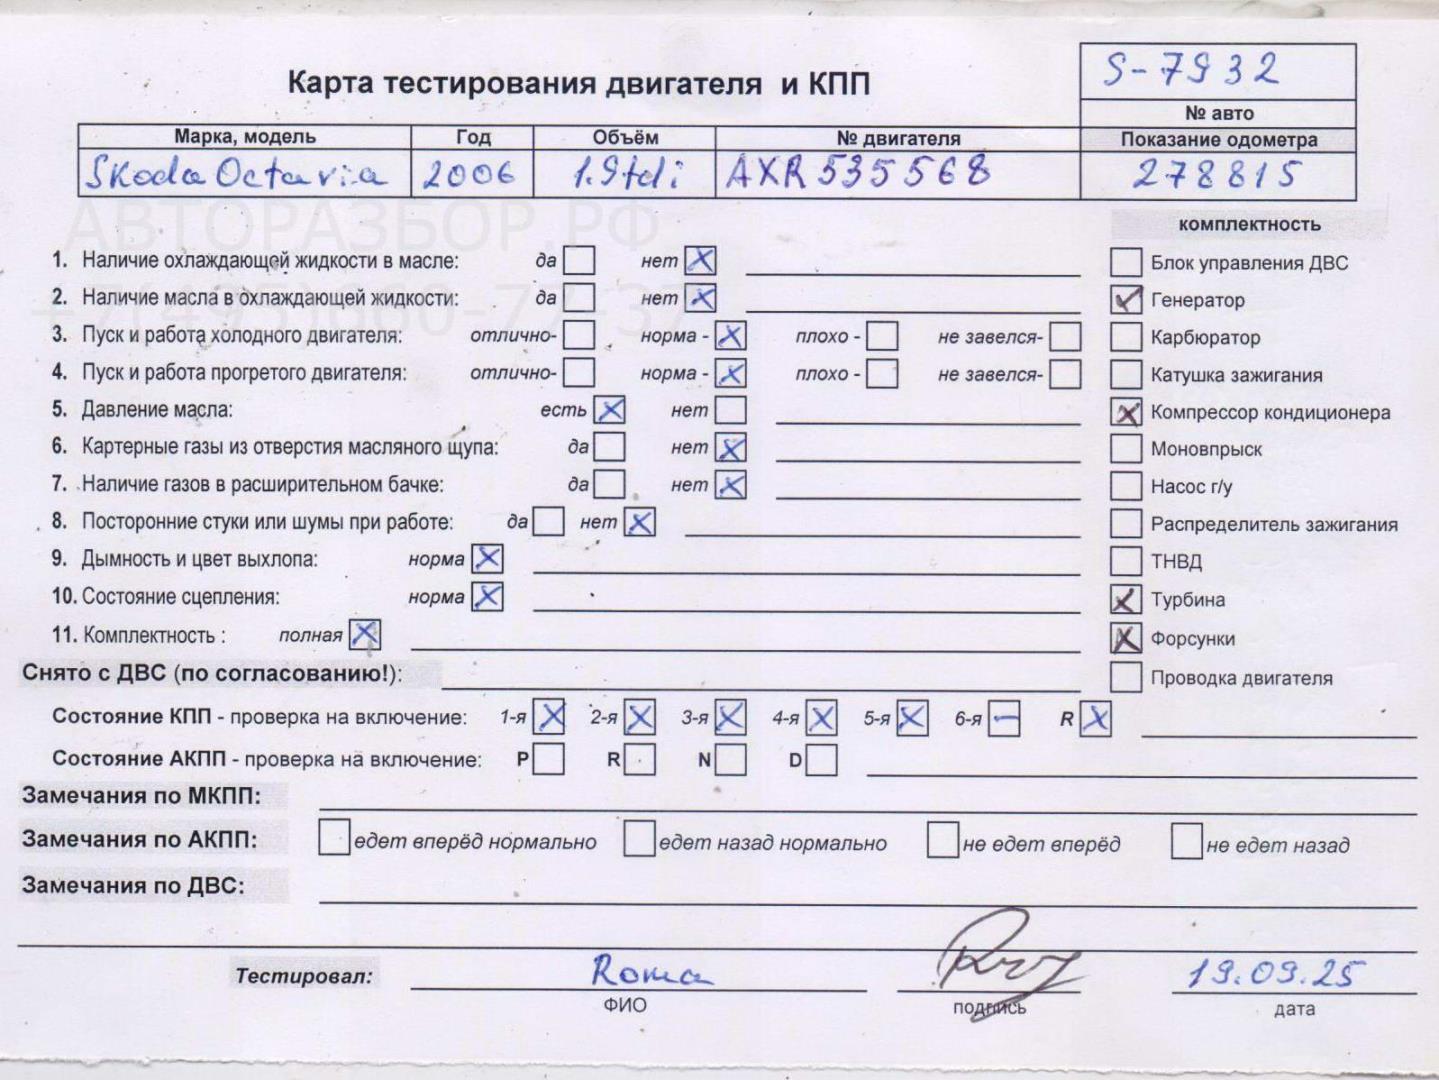 S-7932
Карта тестирования двигателя и КПП
№ авто
Марка, модель Год Объём № двигателя Показание одометра
Skoda Octavia 2006 1.9tdi AXR535568 278815
АВТОРАЗБОР.РФ
+7(495)660-77-37
комплектность
1. Наличие охлаждающей жидкости в масле: да нет Блок управления ДВС
2. Наличие масла в охлаждающей жидкости: да нет Генератор
3. Пуск и работа холодного двигателя: отлично- норма - плохо - не завелся- Карбюратор
4. Пуск и работа прогретого двигателя: отлично- норма - плохо - не завелся- Катушка зажигания
5. Давление масла: есть нет Компрессор кондиционера
6. Картерные газы из отверстия масляного щупа: да нет Моновпрыск
7. Наличие газов в расширительном бачке: да нет Насос г/у
8. Посторонние стуки или шумы при работе: да нет Распределитель зажигания
9. Дымность и цвет выхлопа: норма ТНВД
10. Состояние сцепления: норма Турбина
11. Комплектность : полная Форсунки
Снято с ДВС (по согласованию!): Проводка двигателя
Состояние КПП - проверка на включение: 1-я 2-я 3-я 4-я 5-я 6-я R
Состояние АКПП - проверка на включение: P R N D
Замечания по МКПП:
Замечания по АКПП: едет вперёд нормально едет назад нормально не едет вперёд не едет назад
Замечания по ДВС:
Тестировал: Roma 19.09.25
ФИО подпись дата